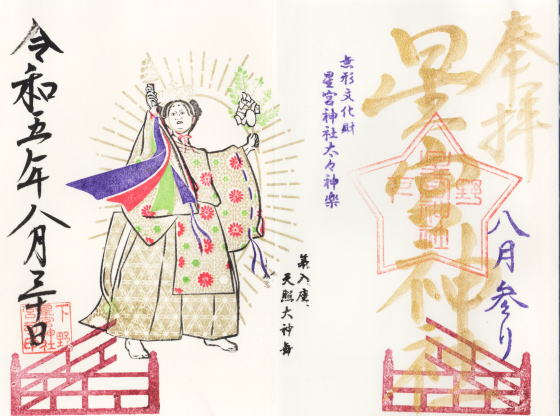 奉拝
星宮神社
八月参り
無形文化財
星宮神社太々神楽
第八座
天照大神舞
令和五年八月三十日
下野
星宮神社